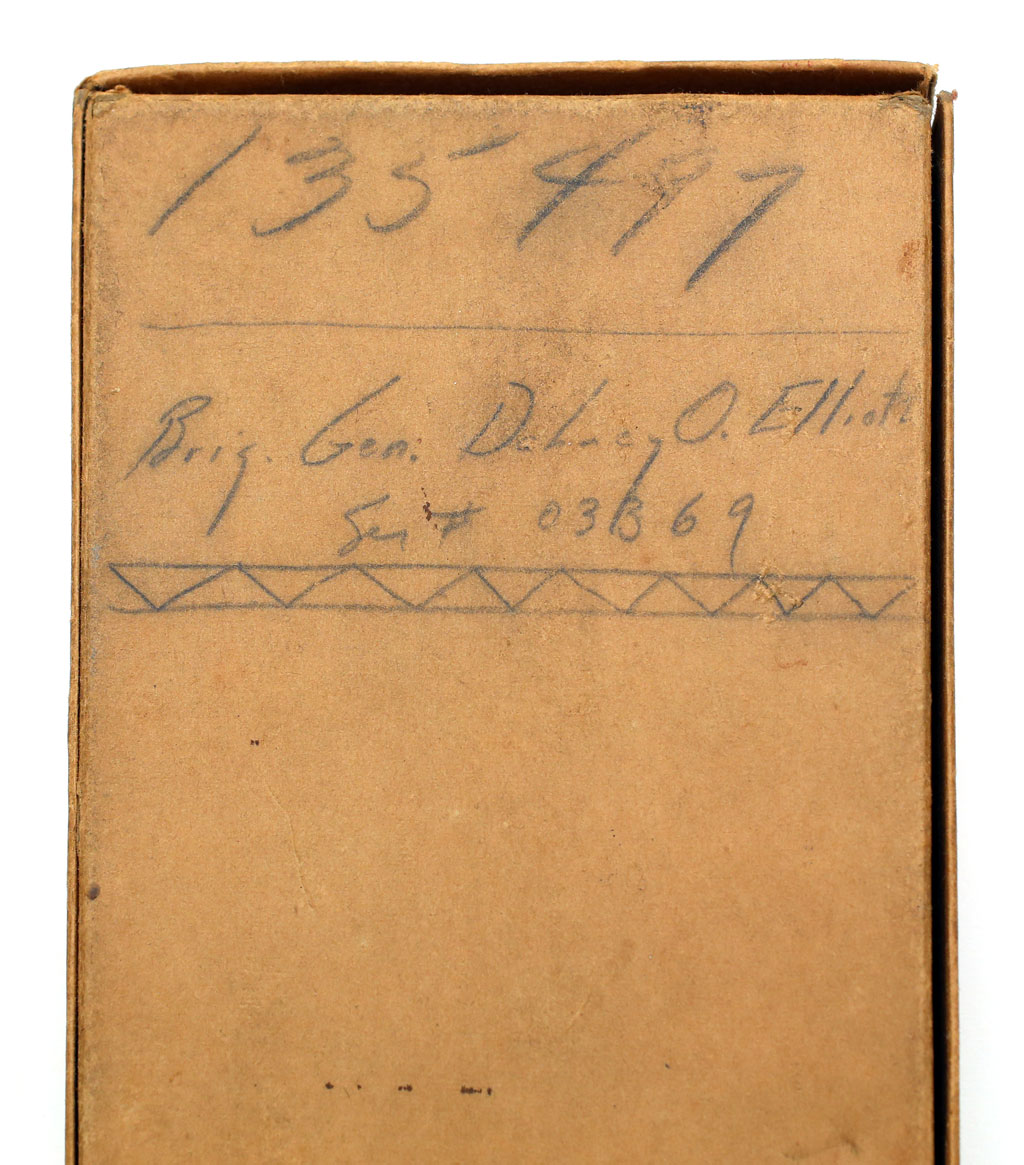 135497
Brig. Gen. Dabney O. Elliott
Ser # 03869